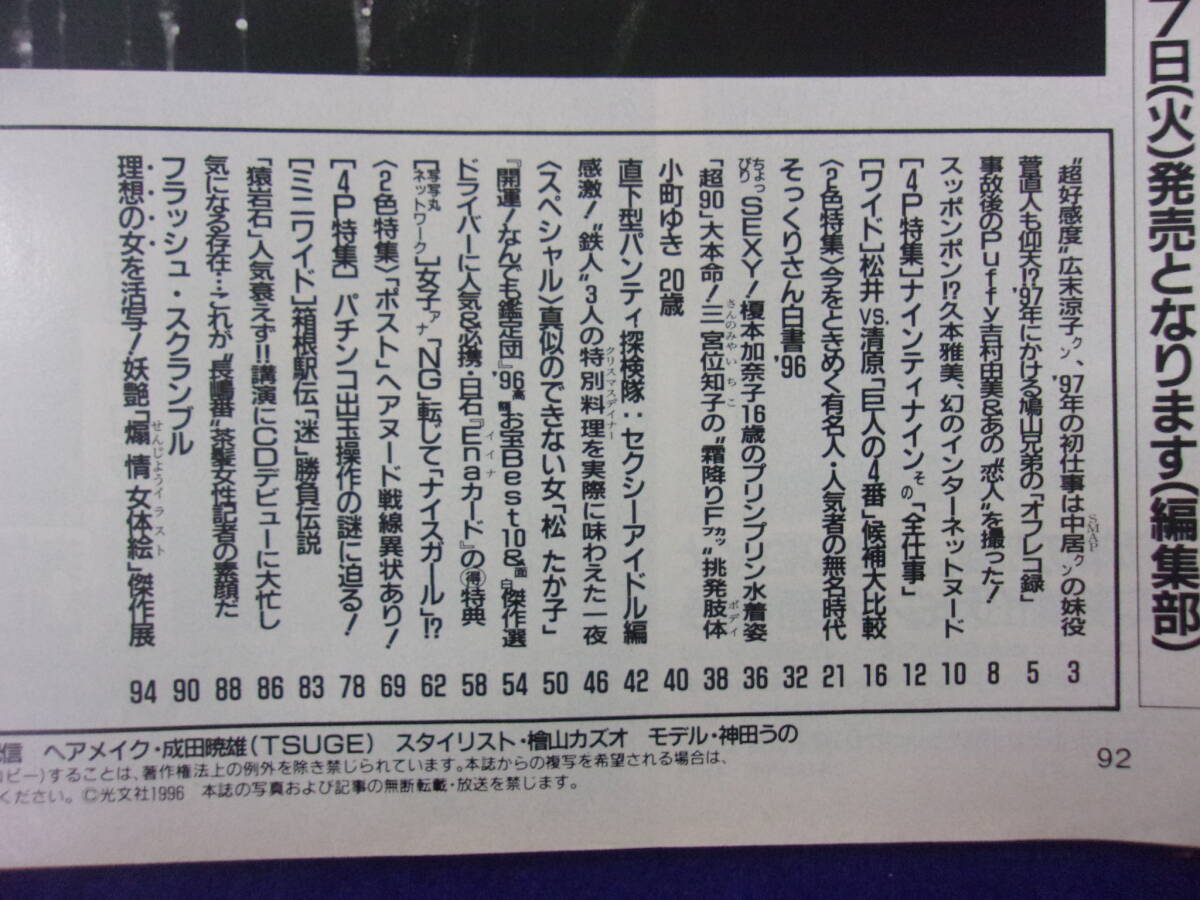 7日(火)発売となります(編集部)
“超好感度”広末涼子クン、'97年の初仕事は中居クンの妹役 3
SMAP
菅直人も仰天!?'97年にかける鳩山兄弟の「オフレコ録」 5
事故後のPuffy吉村由美&あの“恋人”を撮った! 8
スッポンポン!?久本雅美、幻のインターネットヌード 10
[4P特集]ナインティナインその「全仕事」 12
[ワイド]松井VS.清原「巨人の4番」候補大比較 16
〈2色特集〉今をときめく有名人・人気者の無名時代 21
そっくりさん白書'96 32
ちょっぴりSEXY!榎本加奈子16歳のプリンプリン水着姿 36
「超90」大本命!三宮位知子の“霜降りFカップ”挑発肢体 38
さんのみやいちこ
ボディ
小町ゆき 20歳 40
直下型パンティ探検隊:セクシーアイドル編 42
感激!“鉄人”3人の特別料理を実際に味わえた一夜 46
クリスマスディナー
〈スペシャル〉真似のできない女「松 たか子」 50
『開運!なんでも鑑定団』'96高額お宝Best10&面白傑作選 54
ドライバーに人気&必携・白石『Enaカード』の㊕特典 58
イイナ
[写写丸ネットワーク]女子アナ「NG」転じて「ナイスガール」!? 62
〈2色特集〉「ポスト」ヘアヌード戦線異状あり! 69
[4P特集] パチンコ出玉操作の謎に迫る! 78
[ミニワイド]箱根駅伝「迷」勝負伝説 83
「猿岩石」人気衰えず!!講演にCDデビューに大忙し 86
気になる存在…これが“長嶋番”茶髪女性記者の素顔だ 88
フラッシュ・スクランブル 90
理想の女を活写!妖艶「煽情女体絵」傑作展 94
せんじょうイラスト
信 ヘアメイク・成田暁雄(TSUGE) スタイリスト・檜山カズオ モデル・神田うの
コピー)することは、著作権法上の例外を除き禁じられています。本誌からの複写を希望される場合は、
ください。©光文社1996 本誌の写真および記事の無断転載・放送を禁じます。
92